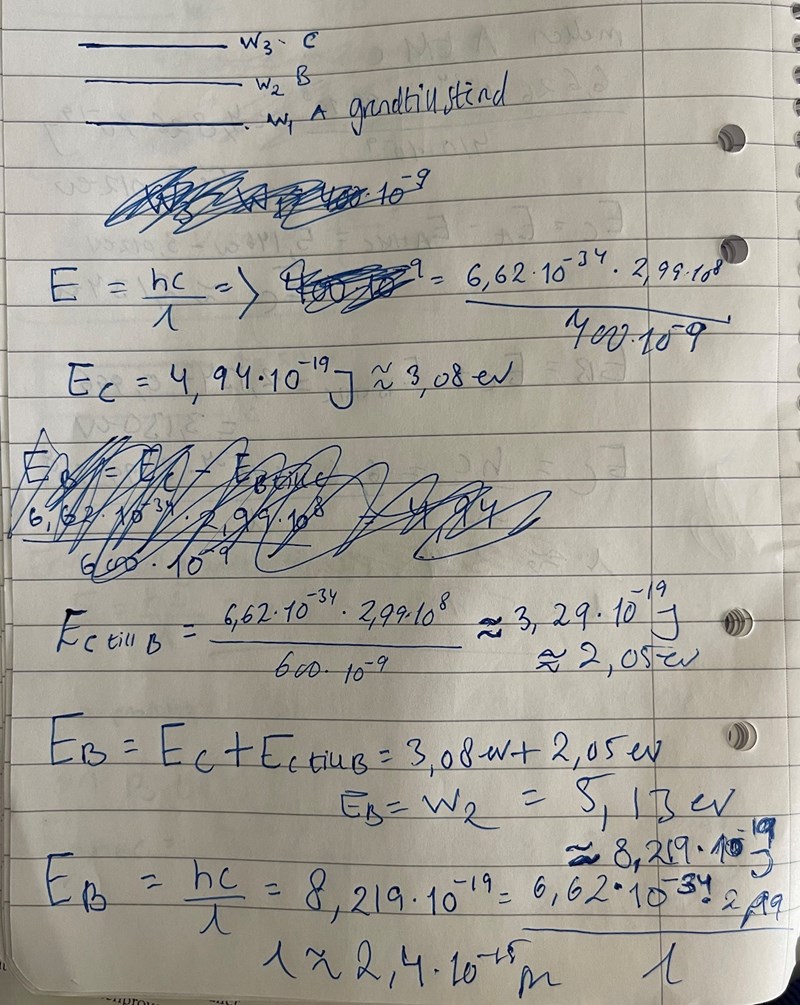 W3 - C
W2 B
W1 A grundtillstånd
400·10^-9
E = hc/λ => = 6,62·10^-34 · 2,99·10^8 / 400·10^-9
E_C = 4,94·10^-19 J ≈ 3,08 eV
6,62·10^-34 · 2,99·10^8 = 4,94
600·10^-9
E_C till B = 6,62·10^-34 · 2,99·10^8 / 600·10^-9 ≈ 3,29·10^-19 J
≈ 2,05 eV
E_B = E_C + E_C till B = 3,08 eV + 2,05 eV
E_B = W2 = 5,13 eV
≈ 8,219·10^-19 J
E_B = hc/λ = 8,219·10^-19 = 6,62·10^-34 · 2,99 / λ
λ ≈ 2,4·10^-15 m